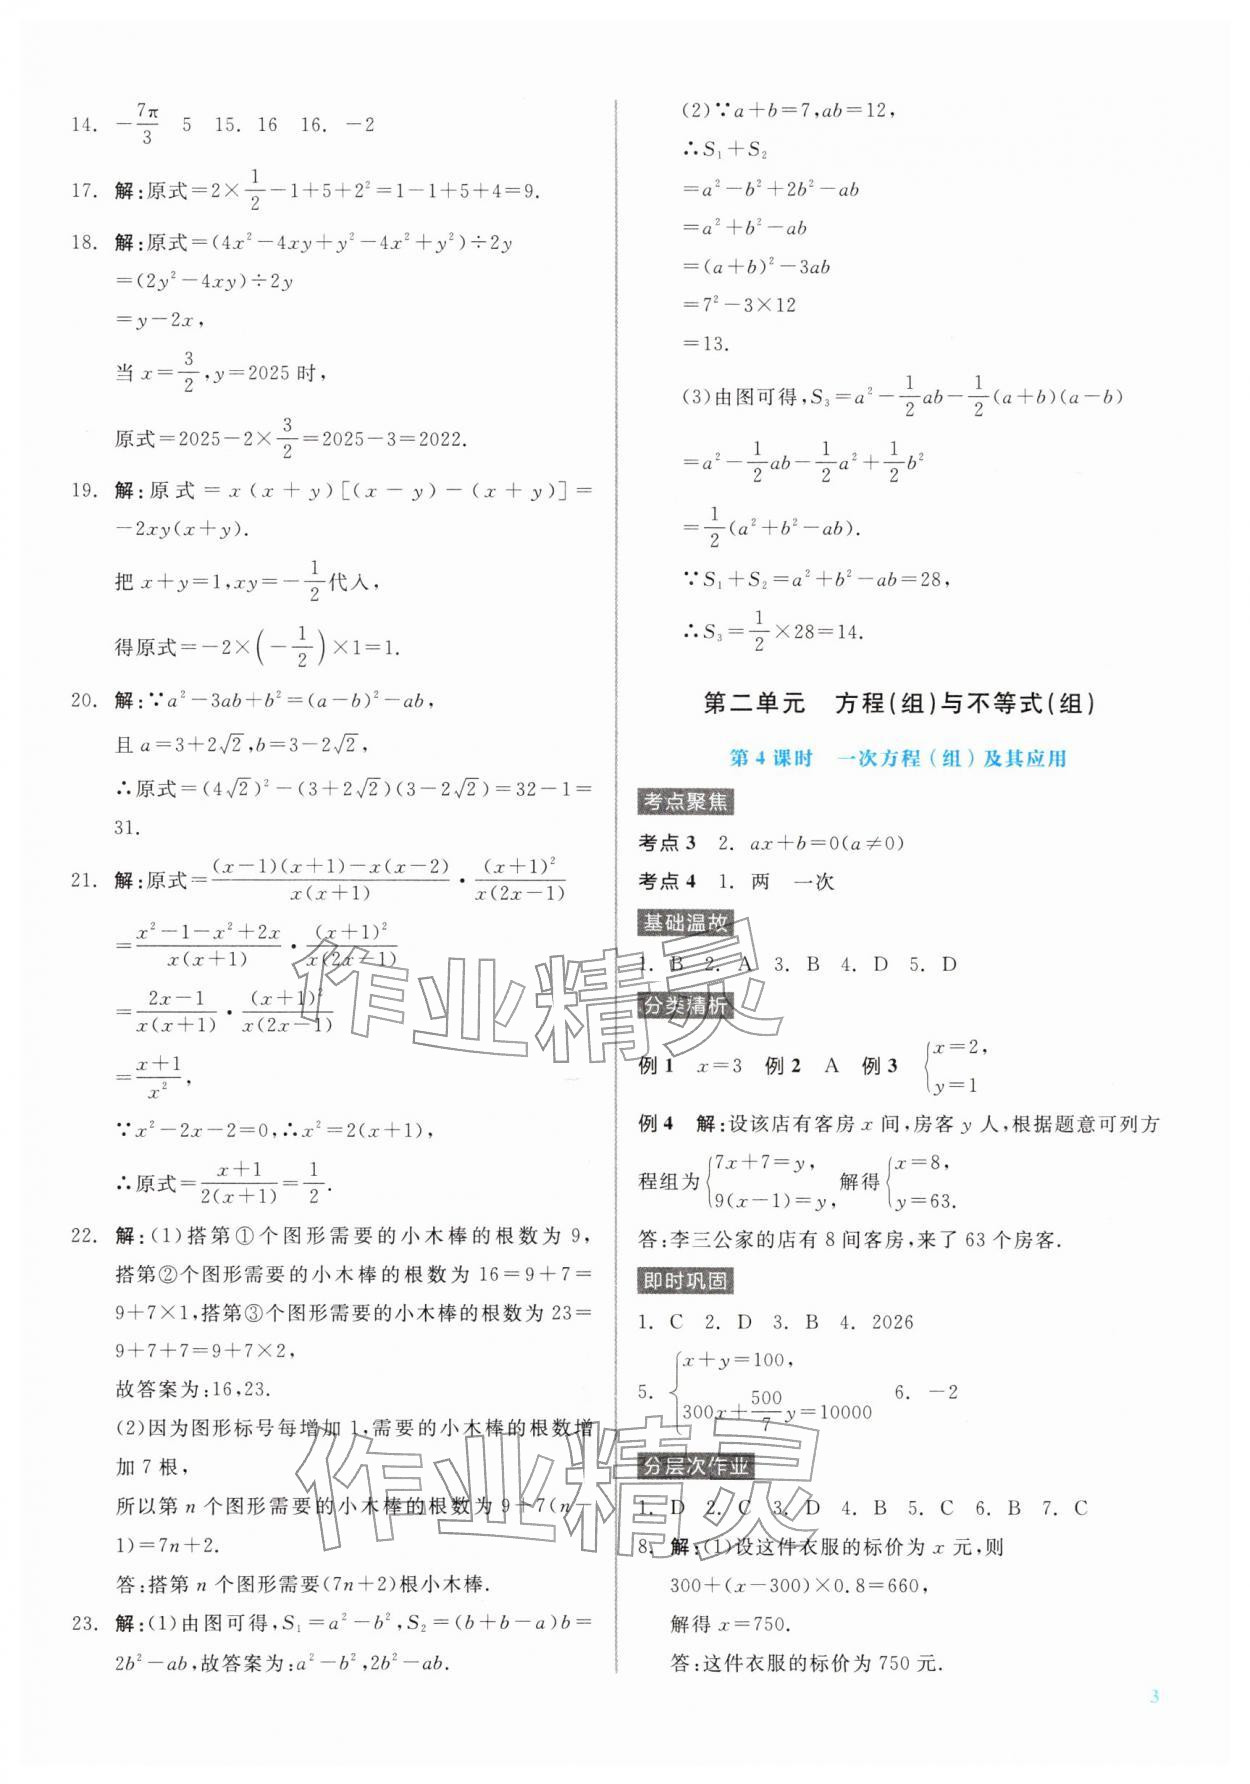 14. －7π/3　5　15. 16　16. －2
17. 解:原式=2×1/2－1+5+2²=1－1+5+4=9.
18. 解:原式=(4x²－4xy+y²－4x²+y²)÷2y
=(2y²－4xy)÷2y
=y－2x,
当 x=3/2,y=2025 时,
原式=2025－2×3/2=2025－3=2022.
19. 解:原式=x(x+y)[(x－y)－(x+y)]=
－2xy(x+y).
把 x+y=1,xy=－1/2代入,
得原式=－2×(－1/2)×1=1.
20. 解:∵a²－3ab+b²=(a－b)²－ab,
且 a=3+2√2,b=3－2√2,
∴原式=(4√2)²－(3+2√2)(3－2√2)=32－1=
31.
21. 解:原式=((x－1)(x+1)－x(x－2))/(x(x+1))·(x+1)²/(x(2x－1))
=(x²－1－x²+2x)/(x(x+1))·(x+1)²/(x(2x－1))
=(2x－1)/(x(x+1))·(x+1)²/(x(2x－1))
=(x+1)/x²,
∵x²－2x－2=0,∴x²=2(x+1),
∴原式=(x+1)/(2(x+1))=1/2.
22. 解:(1)搭第①个图形需要的小木棒的根数为 9,
搭第②个图形需要的小木棒的根数为 16=9+7=
9+7×1,搭第③个图形需要的小木棒的根数为 23=
9+7+7=9+7×2,
故答案为:16,23.
(2)因为图形标号每增加 1,需要的小木棒的根数增
加 7 根,
所以第 n 个图形需要的小木棒的根数为 9+7(n－
1)=7n+2.
答:搭第 n 个图形需要(7n+2)根小木棒.
23. 解:(1)由图可得,S₁=a²－b²,S₂=(b+b－a)b=
2b²－ab,故答案为:a²－b²,2b²－ab.
(2)∵a+b=7,ab=12,
∴S₁+S₂
=a²－b²+2b²－ab
=a²+b²－ab
=(a+b)²－3ab
=7²－3×12
=13.
(3)由图可得,S₃=a²－1/2ab－1/2(a+b)(a－b)
=a²－1/2ab－1/2a²+1/2b²
=1/2(a²+b²－ab).
∵S₁+S₂=a²+b²－ab=28,
∴S₃=1/2×28=14.
第二单元　方程(组)与不等式(组)
第 4 课时　一次方程(组)及其应用
考点聚焦
考点 3　2. ax+b=0(a≠0)
考点 4　1. 两　一次
基础温故
1. B　2. A　3. B　4. D　5. D
分类精析
例 1　x=3　例 2　A　例 3　{x=2, y=1
例 4　解:设该店有客房 x 间,房客 y 人,根据题意可列方
程组为{7x+7=y, 9(x－1)=y, 解得{x=8, y=63.
答:李三公家的店有 8 间客房,来了 63 个房客.
即时巩固
1. C　2. D　3. B　4. 2026
5. {x+y=100, 300x+500/7y=10000　6. －2
分层次作业
1. D　2. C　3. D　4. B　5. C　6. B　7. C
8. 解:(1)设这件衣服的标价为 x 元,则
300+(x－300)×0.8=660,
解得 x=750.
答:这件衣服的标价为 750 元.
3
作业精灵
作业精灵